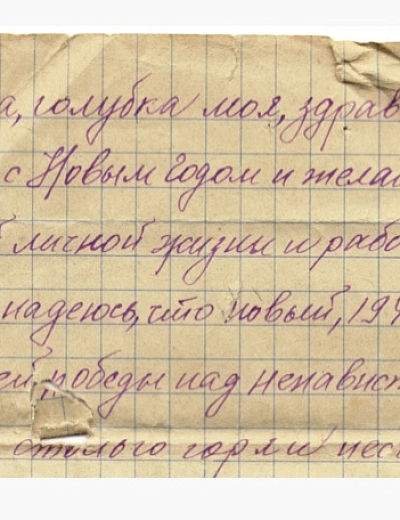 а, голубка моя, здрав
с Новым Годом и желаю
личной жизни и рабо
надеюсь, что новый, 194
ей победы над ненавист
столько горя и нес